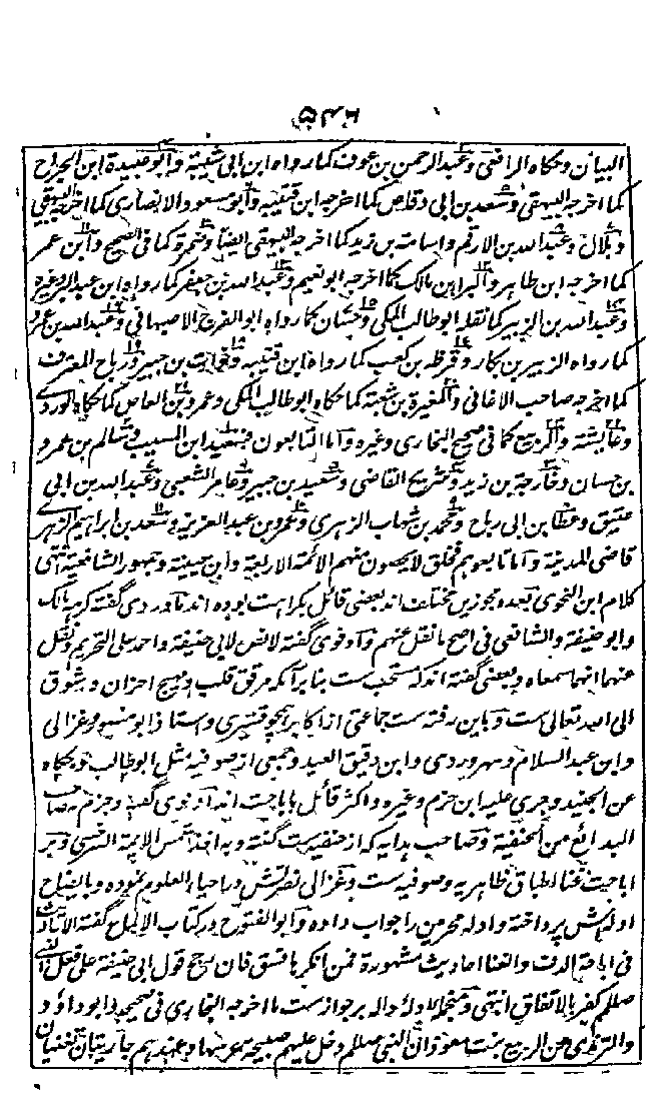 البیان وحکاہ الرافعی وعبد الرحمن بن عوف کما رواہ ابن ابی شیبۃ وابو عبیدۃ ابن الجراح
کما اخرجہ البیہقی وسعد بن ابی وقاص کما اخرجہ ابن قتیبہ وابو مسعود الانصاری کما اخرجہ البیہقی
وبلال وعبد اللہ بن الارقم واسامۃ بن زید کما اخرجہ البیہقی ایضا وحمزۃ کما فی الصحیح وابن عمر
کما اخرجہ ابن طاہر والبراء بن مالک کما اخرجہ ابو نعیم وعبد اللہ بن جعفر کما رواہ ابن عبد البر وغیرہ
وعبد اللہ بن الزبیر کما نقلہ ابو طالب المکی وحسان کما رواہ ابو الفرج الاصبہانی وعبد اللہ بن عمرو
کما رواہ الزبیر بن بکار وقرظہ بن کعب کما رواہ ابن قتیبہ وخوات بن جبیر ورباح المعترف
کما اخرجہ صاحب الاغانی والمغیرۃ بن شعبۃ کما حکاہ ابو طالب المکی وعمرو بن العاص کما حکاہ الماوردی
وعایشۃ والربیع کما فی صحیح البخاری وغیرہ واما التابعون فسعید ابن المسیب وسالم بن عمرو
بن حسان وخارجۃ بن زید وشریح القاضی وسعید بن جبیر وعامر الشعبی وعبد اللہ بن ابی
عتیق وعطا بن ابی رباح ومحمد بن شہاب الزہری وعمرو بن عبد العزیز وسعد بن ابراہیم الزہری
قاضی المدینۃ واما تابعوہم فخلق لا یحصون منہم الائمۃ الاربعۃ وابن عیینۃ وجمہور الشافعیۃ انتہی
کلام ابن النحوی بعدہ مجوزین مختلف اند بعضی قائل بکراہت بودہ اند ماوردی گفتہ کرہہ مالک
وابو حنیفۃ والشافعی فی اصح ما نقل عنہم وادفوی گفتہ لا نص لابی حنیفۃ واحمد علی التحریم ونقل
عنہما انہما سمعاہ وبعضی گفتہ اند کہ مستحب ست بنا بر آنکہ مرقق قلب ومہیج احزان وشوق
الی اللہ تعالی ست وباین رفتہ ست جماعتی از اکابر ہمچو قشیری واستاذ ابو منصور وغزالی
وابن عبد السلام وسہروردی وابن دقیق العید وجمعی از صوفیہ مثل ابو طالب وحکاہ
عن الجنید وجری علیہ ابن حزم وغیرہ واکثر قائل باباحت اند ادفوی گفتہ وجزم بہ صاحب
البدائع من الحنفیۃ وصاحب ہدایہ کہ از حنفیہ ست گفتہ وبہ اخذ شمس الایمۃ السرخسی وبر
اباحت غنا اطباق ظاہریہ وصوفیہ ست وغزالی نصرتش در احیاء العلوم نمودہ وبایضاح
ادلہ اش پرداختہ وادلہ محرمین را جواب دادہ وابو الفتوح در کتاب الالماع گفتہ الاحادیث
فی اباحۃ الدف والغنا احادیث مشہورۃ فمن انکرہا فسق فان رجح قول ابی حنیفۃ علی فعل النبی
صلعم کفر بالاتفاق انتہی ومنجملہ ادلۂ دالہ بر جواز ست ما اخرجہ البخاری فی صحیحہ وابو داؤد
والترمذی عن الربیع بنت معوذ ان النبی صلعم دخل علیہم صبیحۃ عرسہا وعندہم جاریتان تغنیان